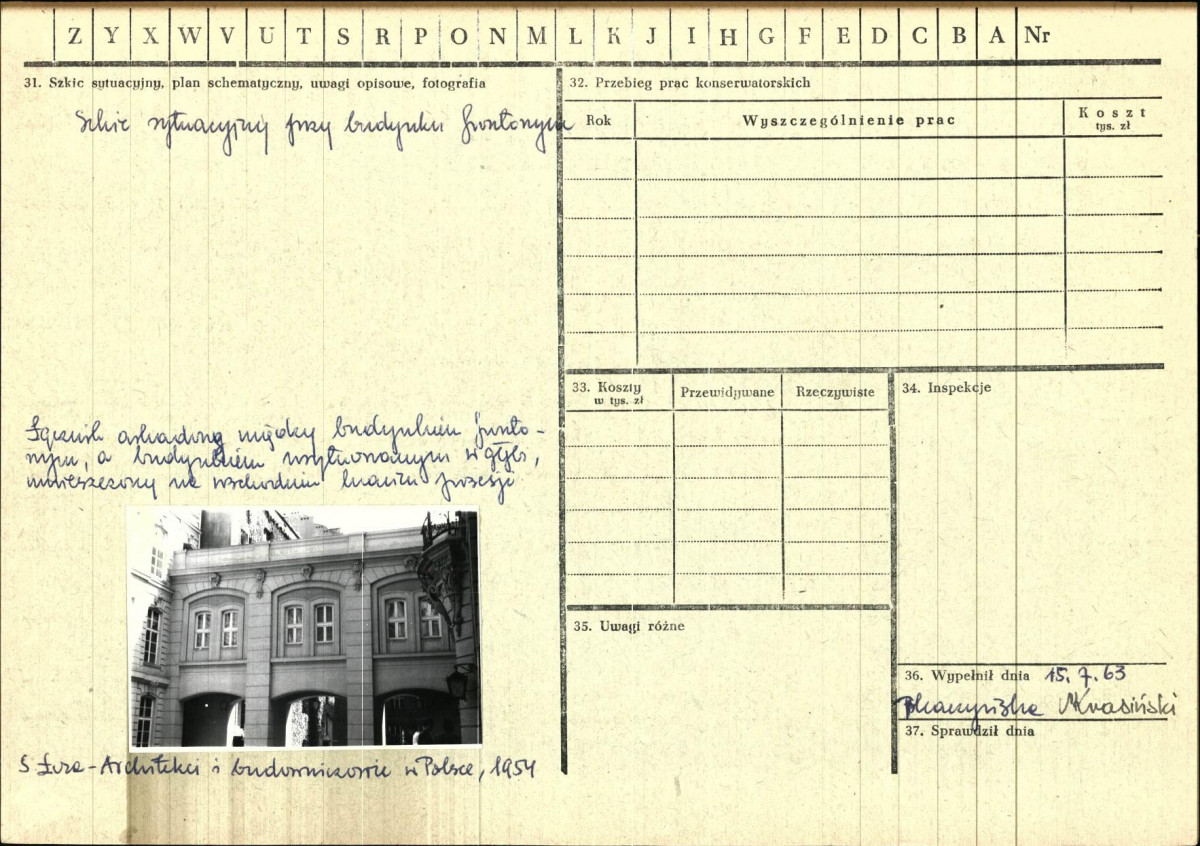 Z Y X W V U T S R P O N M L K J I H G F E D C B A Nr
31. Szkic sytuacyjny, plan schematyczny, uwagi opisowe, fotografia
Szkic sytuacyjny przy budynku frontonym
Łącznik arkadony między budynkiem fronto-
nym, a budynkiem usytuowanym w głębi,
umieszczony na wschodnim krańcu posesji
S Łoza - Architekci i budowniczowie w Polsce, 1954
32. Przebieg prac konserwatorskich
Rok
Wyszczególnienie prac
Koszt
tys. zł
33. Koszty
w tys. zł
Przewidywane
Rzeczywiste
34. Inspekcje
35. Uwagi różne
36. Wypełnił dnia 15.7.63
Krasiński
37. Sprawdził dnia